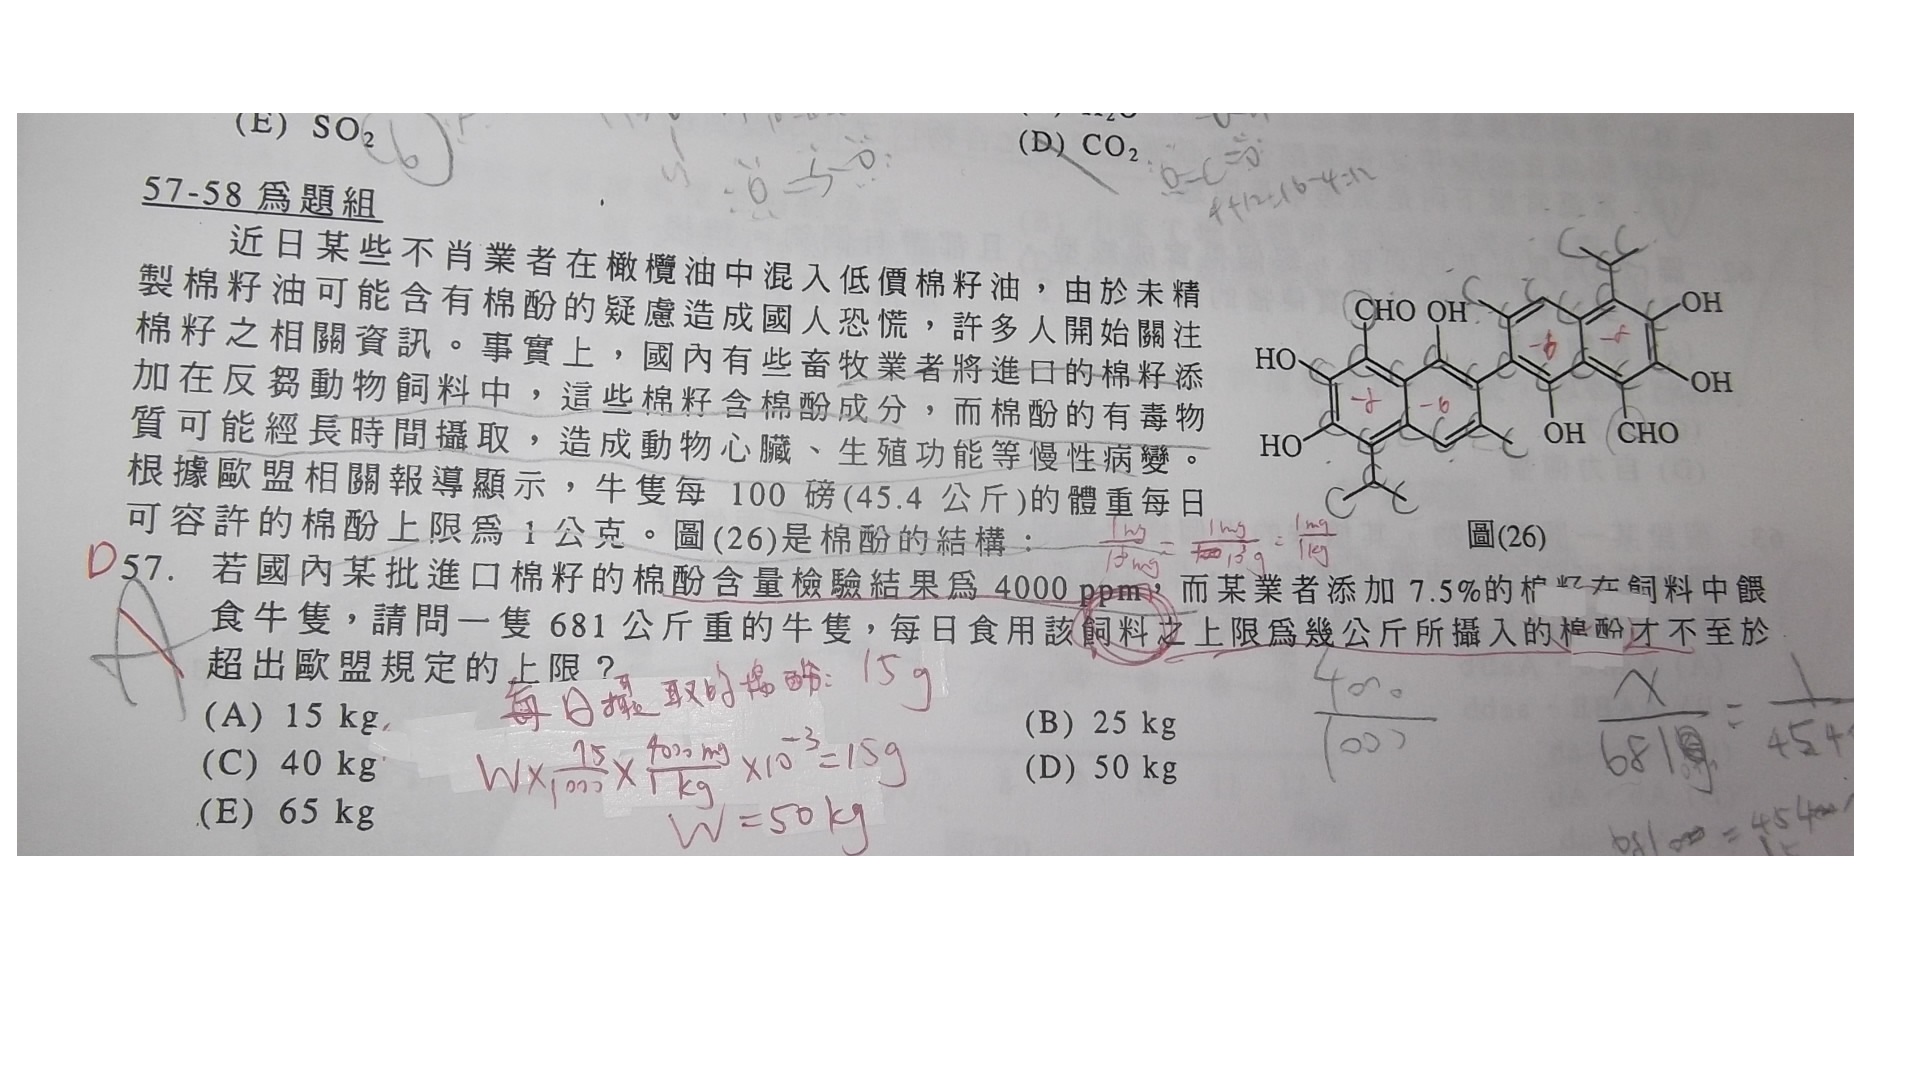 (E) SO2
(D) CO2
57-58 爲題組
近日某些不肖業者在橄欖油中混入低價棉籽油，由於未精
製棉籽油可能含有棉酚的疑慮造成國人恐慌，許多人開始關注
棉籽之相關資訊。事實上，國內有些畜牧業者將進口的棉籽添
加在反芻動物飼料中，這些棉籽含棉酚成分，而棉酚的有毒物
質可能經長時間攝取，造成動物心臟、生殖功能等慢性病變。
根據歐盟相關報導顯示，牛隻每 100 磅(45.4 公斤)的體重每日
可容許的棉酚上限爲 1 公克。圖(26)是棉酚的結構：
CHO OH
OH
HO
OH
HO
OH CHO
圖(26)
D 57. 若國內某批進口棉籽的棉酚含量檢驗結果爲 4000 ppm，而某業者添加 7.5%的棉籽在飼料中餵
食牛隻，請問一隻 681 公斤重的牛隻，每日食用該飼料之上限爲幾公斤所攝入的棉酚才不至於
超出歐盟規定的上限？
A
每日攝取的棉酚: 15g
(A) 15 kg
(B) 25 kg
(C) 40 kg
(D) 50 kg
(E) 65 kg
W×75/1000×4000mg/1kg×10⁻³=15g
W=50kg